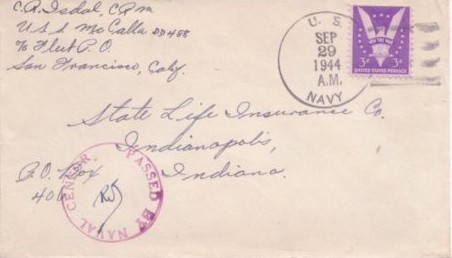 C.R. Isdal, C.P.M
U.S.S. McCalla DD488
℅ Fleet P.O.
San Francisco, Calif.
U. S.
SEP
29
1944
A.M.
NAVY
WIN THE WAR
3¢ 3¢
UNITED STATES POSTAGE
State Life Insurance Co.
Indianapolis,
Indiana.
P.O. Box
406
PASSED BY NAVAL CENSOR